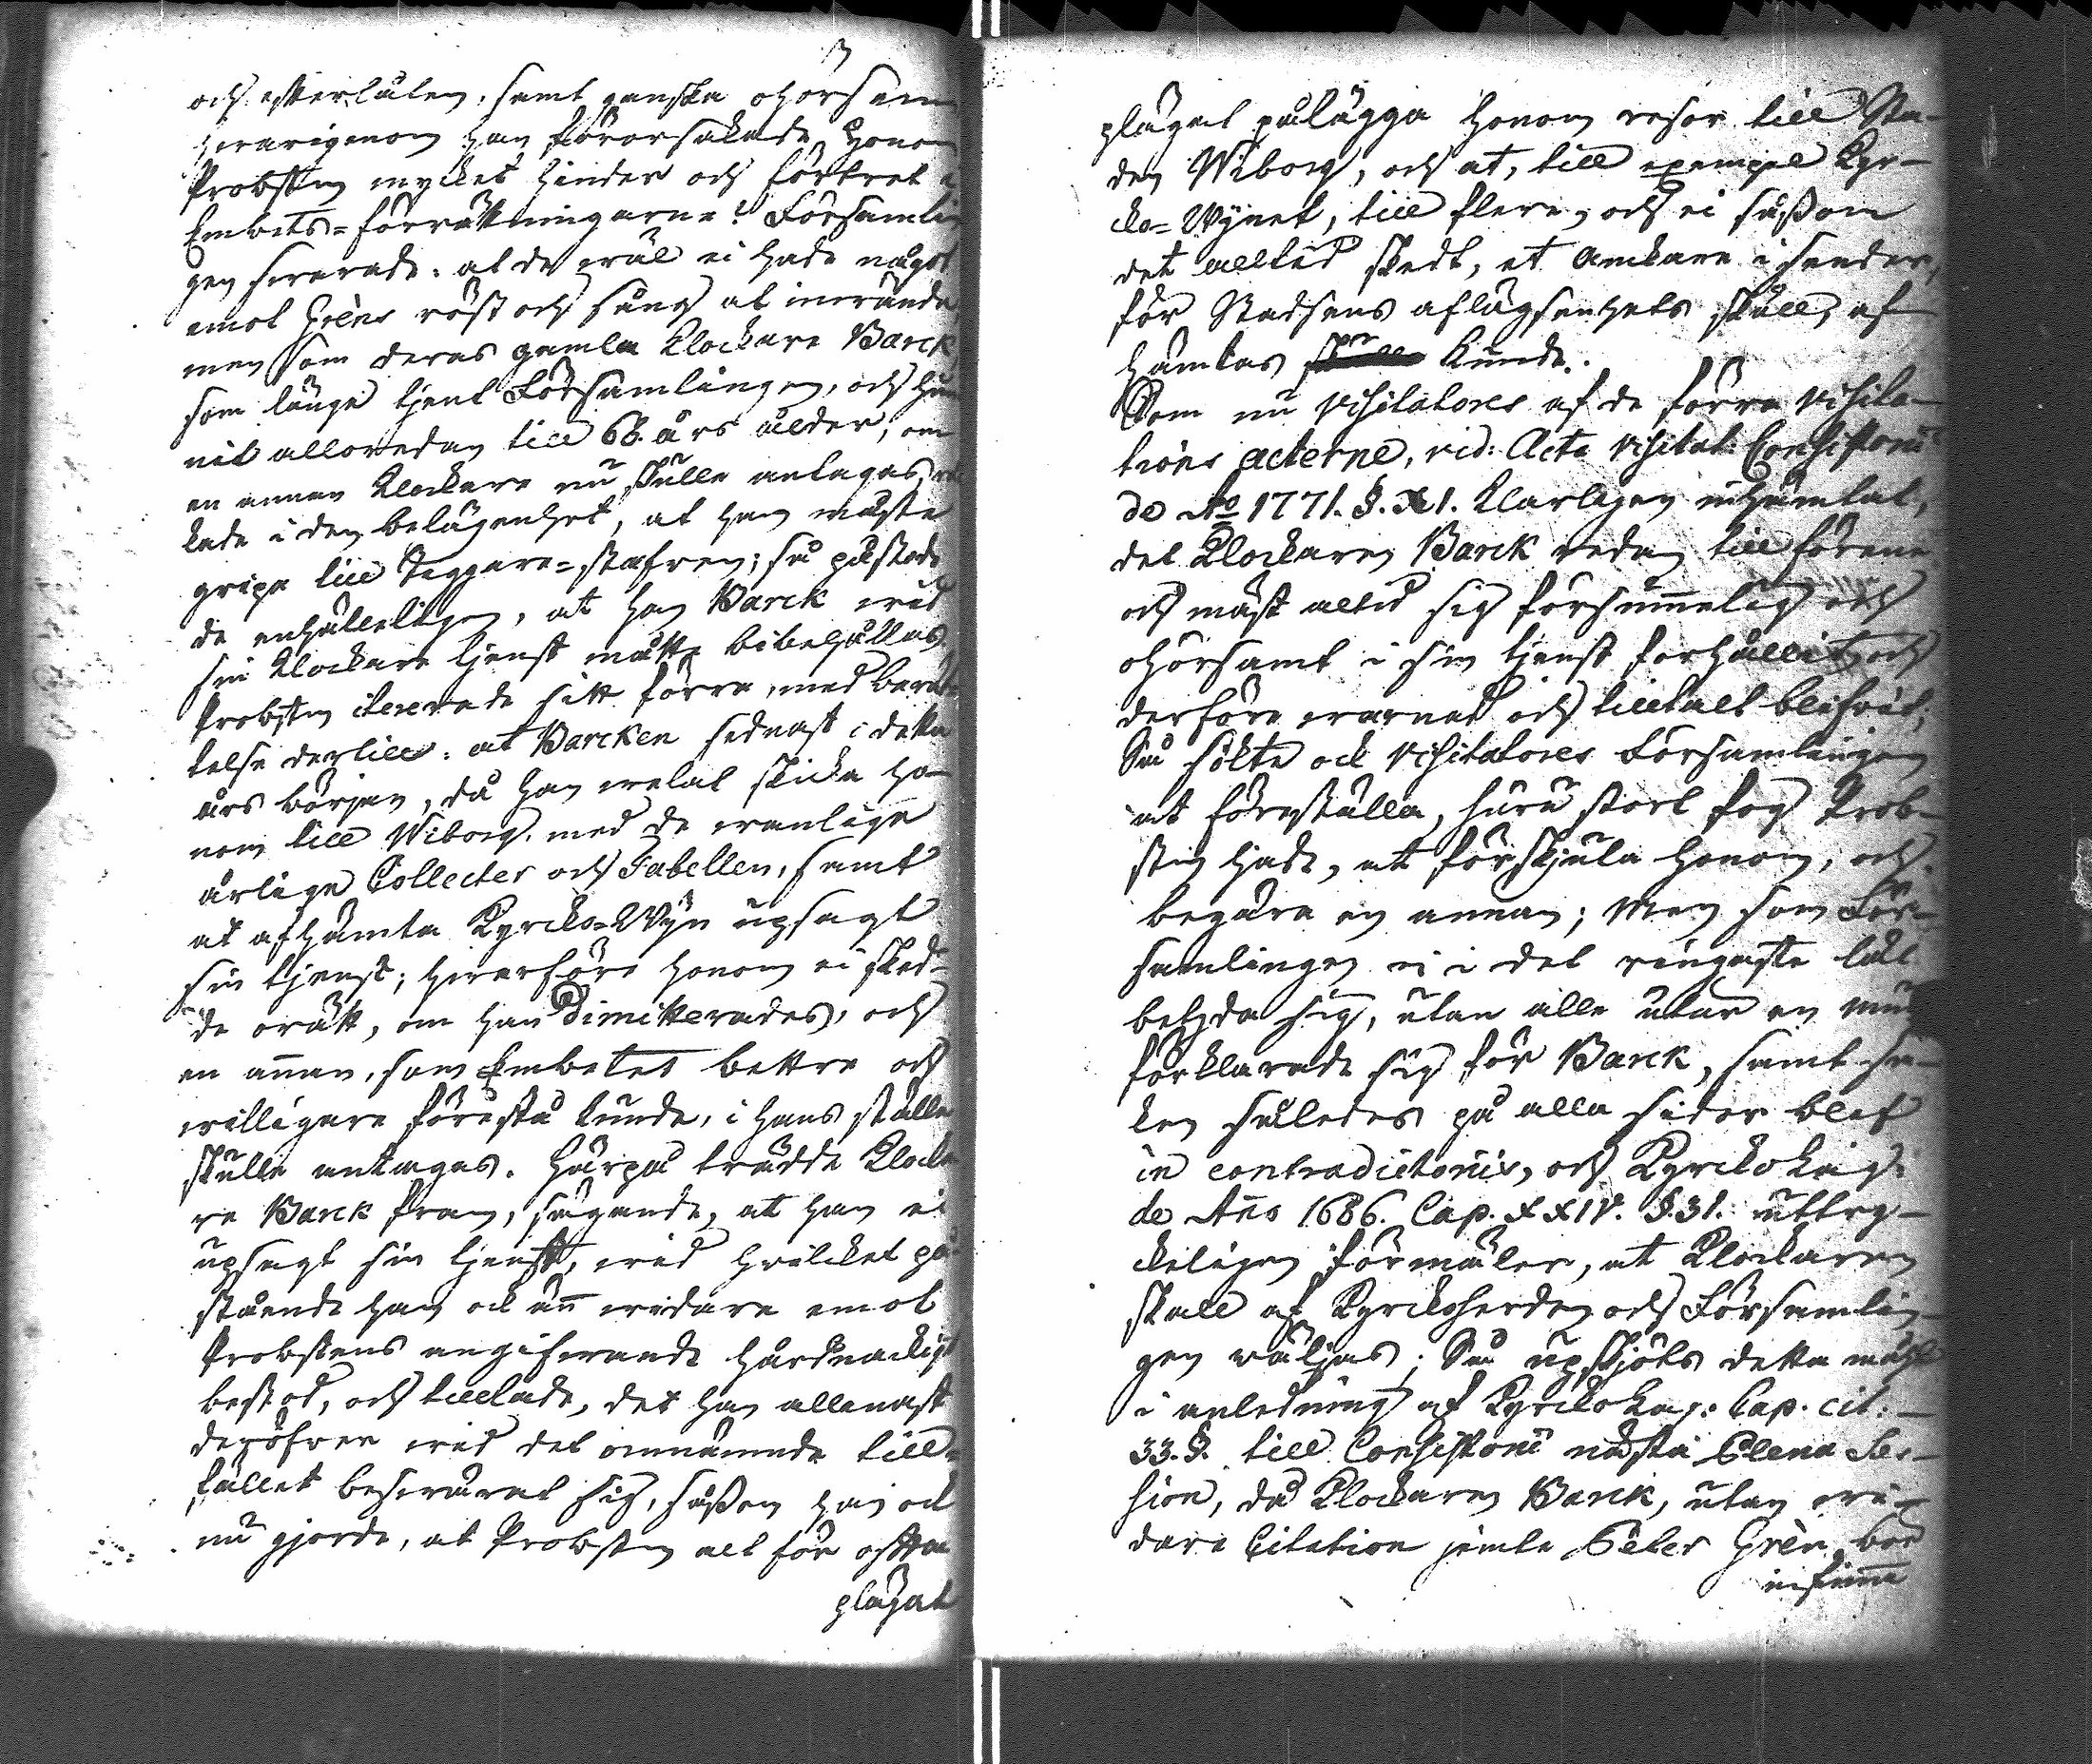 och efterlåten, samt ganska ohörsam
hwarigenom han förorsakade honom
Probsten mycket hinder och förtret i
Embets-förrättningarne! Församlin
gen swarade: at de wäl ei hade något
emot Grèns röst och sång at inwända
men som deras gamla Klockare Barck
som länge tjent Församlingen, och hun
nit allaredan till 68. års ålder, om
en annan Klockare nu skulle antagas,
kade i den belägenhet, at han måste
gripa till Tiggare-stafwen; så påstodo
de enhälleligen, at han Barck wid
sin Klockare tjenst måtte bibehållas.
Probsten itererade sitt förra, med berät
telse dertill: at Barcken sednast i detta
års början, då han welat skicka ho-
nom till Wiborg med de wanlige
årlige Collecter och Tabellen, samt
at afhämta Kyrcko-Wyn upsagt
sin tjenst; hwarföre honom ei sked-
de orätt, om han dimitterades, och
en annan, som Embetet bettre och
willigare förestå kunde, i hans ställe
skulle antagas. Härpå trädde Klocka
re Barck fram, sägande, at han ei
upsagt sin tjenst, wid hwilcket på-
stående han ock änn widare emot
Probstens angifwande hårdnackigt
bestod, och tillade, det han allenast
deröfwer wid det omnämnde till-
fället beswärat sig, såsom han ock
nu gjorde, at Probsten alt för ofta
plägat
plägat pålägga honom resor till Sta-
den Wiborg, och at, till exempel Kyr-
cko-Wynet, till flere, och ei såsom
det alltid skedt, et Anckare i sender,
för Stadsens aflägsenhets skull, af
hämtas kunde.
Som nu Visitatores af de förra Visita-
tions acterne, vid: Acta Visitat: Consistorii
de Ao 1771. §. XI. klarligen inhämtat,
det Klockaren Barck redan till förene
och mäst altid sig försummelig och
ohörsamt i sin tjenst förhållit, och
derföre warnat och tilltalt blifwit;
Så sökte ock Visitatores Församlingen
at föreställa, huru stort fog Prob-
sten hade, at förskjuta honom, och
begära en annan; Men som För-
samlingen ei i det ringaste lät
betyda sig, utan alle utur en mun
förklarade sig för Barck, samt sa-
ken således på alla sider blef
in contradictoriis, och Kyrcko Lag:
de Año 1686. Cap. XXIV. §. 31. uttry-
ckeligen förmäler, at Klockaren
skall af Kyrckoherden och Församlin-
gen wäljas; Så upskjöts detta mål
i anledning af Kyrcko Lag: Cap. cit:
33. §. till Consistorii nästa Plena Ses-
sion, då Klockaren Barck, utan wi-
dare Citation jemte Peter Grèn bör
infinna